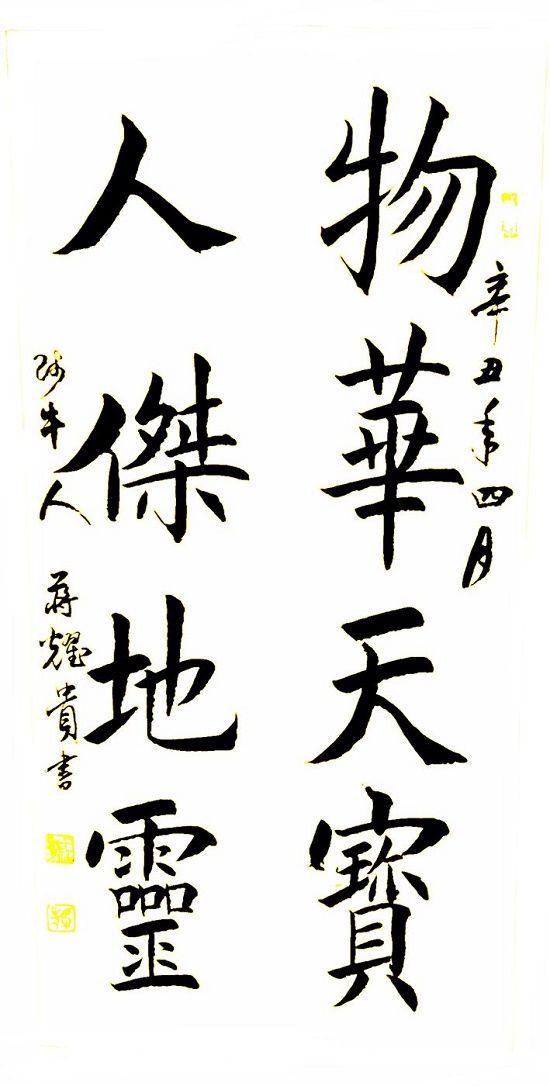 辛丑年四月
物華天寶
人傑地靈
牛人
蔣耀貴書